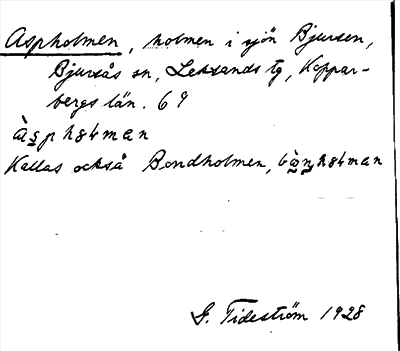 Aspholmen, holmen i sjön Bjursen,
Bjursås sn, Leksands tg, Koppar-
bergs län. 69
àsphålman
Kallas också Bondholmen, bònhålman
G. Tideström 1928